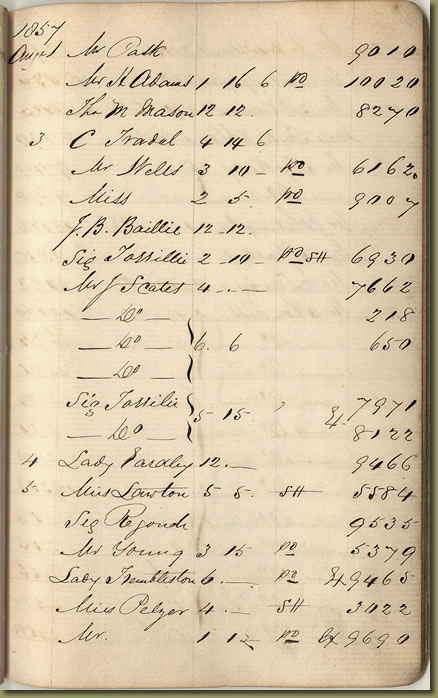 1857
August Mr Park 9010
Mr H Adams 1 16 6 po 10020
Tho M Mason 12 12 8270
3 C Tradel 4 14 6
Mr Wells 3 10 - po 6162
Miss 2 5 po 9007
J. B. Baillie 12 12
Sig 2 10 - po SH 6930
Mr J Scates 4 - - 7662
— Do — 218
— Do — 6 6 650
— Do —
Sig 5 15 7971
— Do — 8122
4 Lady Eardley 12 — 9466
5 Miss Lawton 5 5 SH 5584
Sig Regondi 9535
Mr Young 3 15 po 5379
Lady Trembleston 6 — po Ex 9465
Miss Pelzer 4 — SH 3022
Mr. 1 12 po Ex 9690